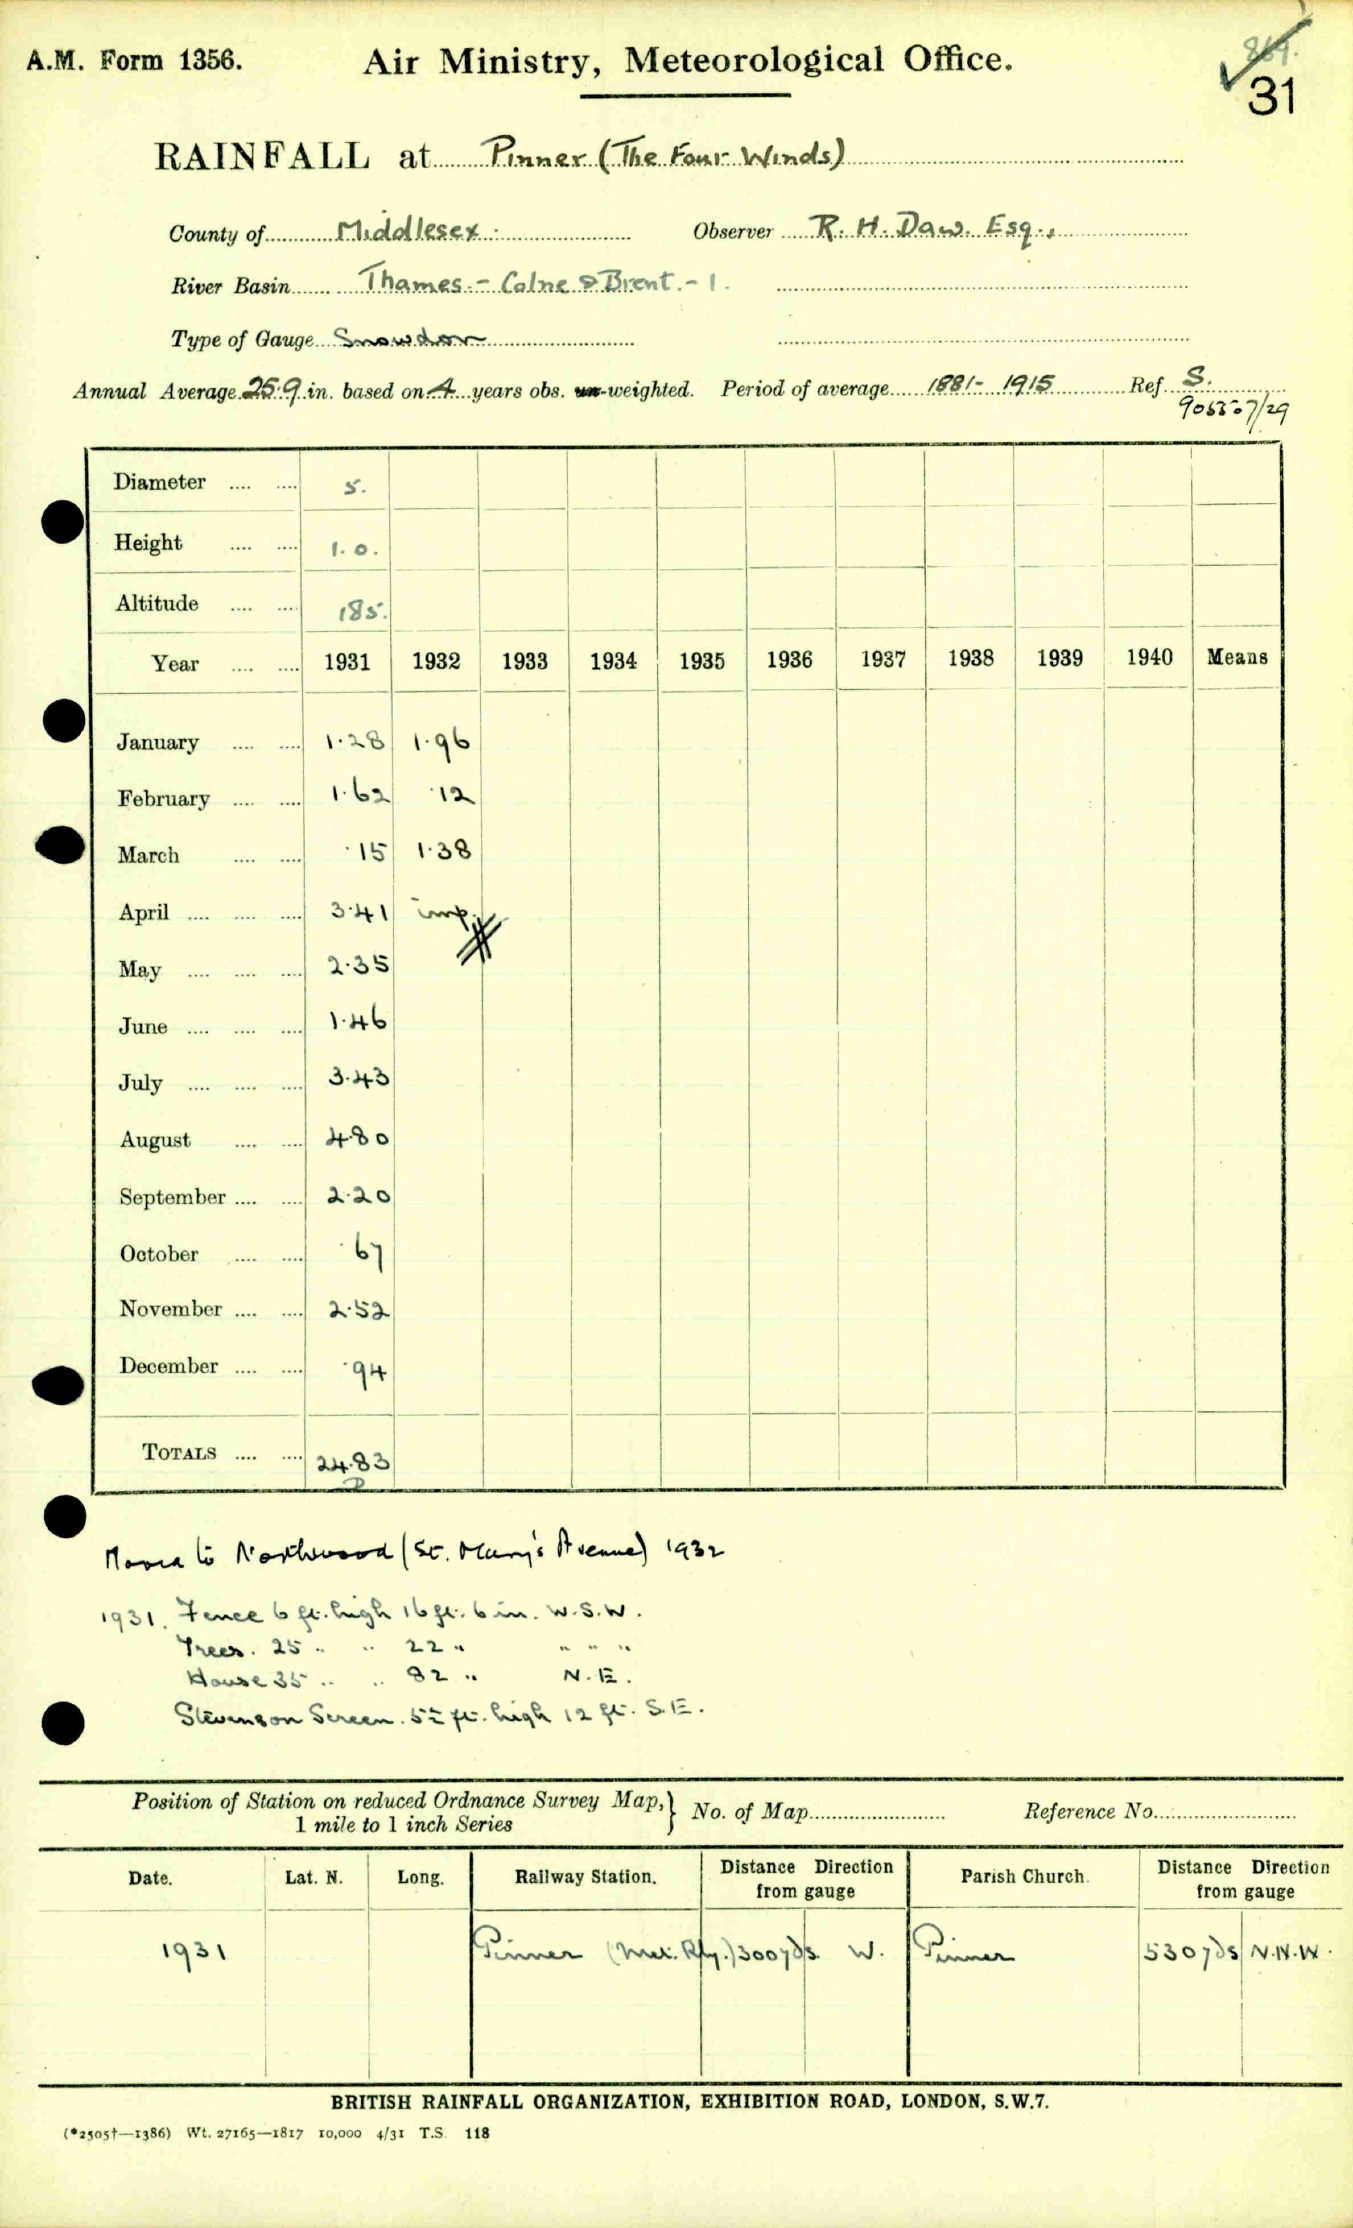 A.M. Form 1356.
Air Ministry, Meteorological Office.
31
RAINFALL at Pinner (The Four Winds)
County of Middlesex. Observer R. H. Daw. Esq.,
River Basin Thames - Colne & Brent. - 1.
Type of Gauge Snowdon
Annual Average 25.9 in. based on 4 years obs. un-weighted. Period of average 1881 - 1915 Ref. S.
905507/29
Diameter .... .... 5.
Height .... .... 1.0.
Altitude .... .... 185.
Year .... .... 1931 1932 1933 1934 1935 1936 1937 1938 1939 1940 Means
January .... .... 1.28 1.96
February .... .... 1.62 .12
March .... .... .15 1.38
April .... .... .... 3.41 imp.
May .... .... .... 2.35
June .... .... .... 1.46
July .... .... .... 3.43
August .... .... 4.80
September .... .... 2.20
October .... .... .67
November .... .... 2.52
December .... .... .94
TOTALS .... .... 24.83
Moved to Northwood (St. Mary's Avenue) 1932
1931. Fence 6 ft. high 16 ft. 6 in. W.S.W.
Trees. 25 " " 22 " " " "
House 35 " " 82 " N.E.
Stevenson Screen. 5½ ft. high 12 ft. S.E.
Position of Station on reduced Ordnance Survey Map, } No. of Map Reference No.
1 mile to 1 inch Series
Date. Lat. N. Long. Railway Station. Distance Direction from gauge Parish Church. Distance Direction from gauge
1931 Pinner (Met. Rly.) 300 yds. W. Pinner 530 yds N.N.W.
BRITISH RAINFALL ORGANIZATION, EXHIBITION ROAD, LONDON, S.W.7.
(*2505†—1386) Wt. 27165—1817 10,000 4/31 T.S. 118